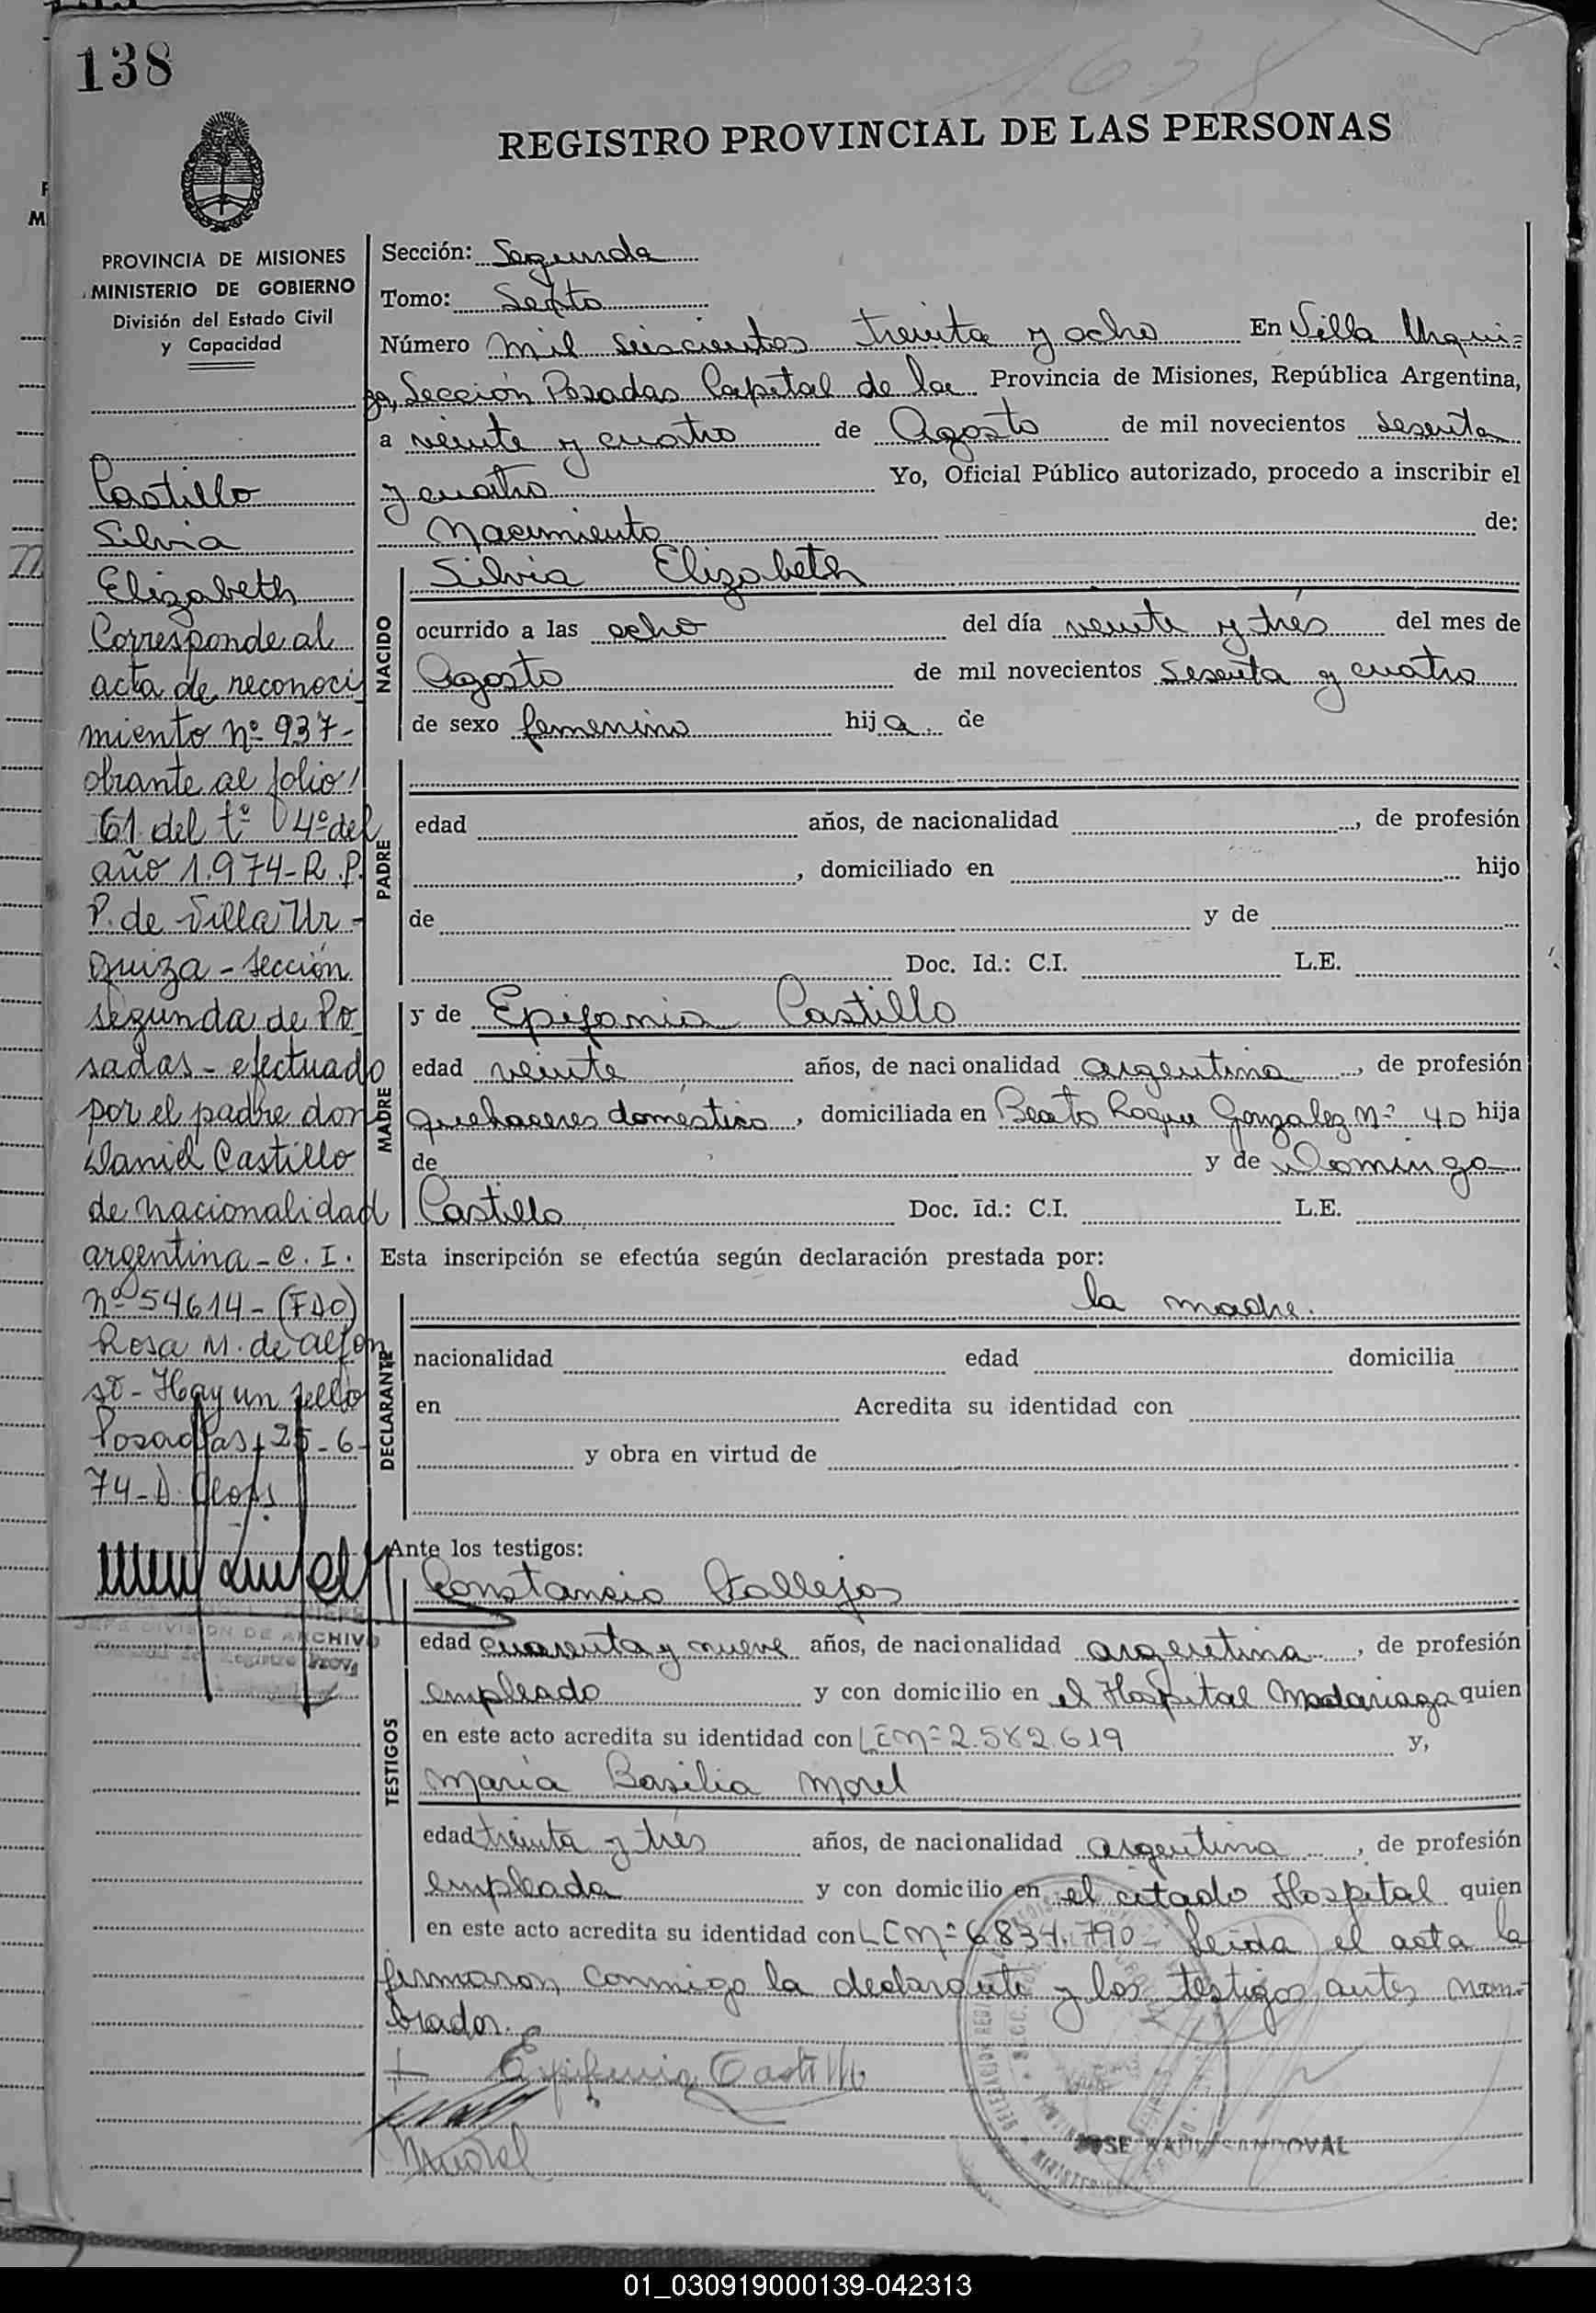 138
1638
REGISTRO PROVINCIAL DE LAS PERSONAS
PROVINCIA DE MISIONES
MINISTERIO DE GOBIERNO
División del Estado Civil
y Capacidad
Castillo
Silvia
Elizabeth
Corresponde al
acta de reconoci
miento Nº 937-
obrante al folio
61 del tº 4º del
año 1.974-R.P.
P. de Villa Ur-
quiza - sección
segunda de Po
sadas - efectuado
por el padre don
Daniel Castillo
de nacionalidad
argentina - C. I.
Nº 54614 - (FDO)
Rosa M. de Alfon
so - Hay un sello
Posadas, 25-6-
74-D.
JEFE DIVISION DE ARCHIVO
Sección: Segunda
Tomo: Sexto
Número mil seiscientos treinta y ocho En Villa Urqui=
za, Sección Posadas Capital de la Provincia de Misiones, República Argentina,
a veinte y cuatro de Agosto de mil novecientos sesenta
y cuatro Yo, Oficial Público autorizado, procedo a inscribir el
Nacimiento de:
NACIDO
Silvia Elizabeth
ocurrido a las ocho del día veinte y trés del mes de
Agosto de mil novecientos sesenta y cuatro
de sexo femenino hija de
PADRE
edad años, de nacionalidad , de profesión
, domiciliado en hijo
de y de
Doc. Id.: C.I. L.E.
MADRE
y de Epifania Castillo
edad veinte años, de nacionalidad argentina , de profesión
quehaceres doméstico , domiciliada en Beato Roque Gonzalez Nº 40 hija
de y de Dominga
Castillo Doc. Id.: C.I. L.E.
Esta inscripción se efectúa según declaración prestada por:
DECLARANTE
la madre.
nacionalidad edad domicilia
en Acredita su identidad con
y obra en virtud de
Ante los testigos:
TESTIGOS
Constancio Vallejos
edad cuarenta y nueve años, de nacionalidad argentina , de profesión
empleado y con domicilio en el Hospital Madariaga quien
en este acto acredita su identidad con LE Nº 2.582.619 y,
María Basilia Morel
edad treinta y trés años, de nacionalidad argentina , de profesión
empleada y con domicilio en el citado Hospital quien
en este acto acredita su identidad con LC Nº 6.834.790 - Leida el acta la
firmaron, conmigo la declarante y los testigos antes nom-
brados.
Epifania Castillo
JOSE RAUL SANDOVAL
01_030919000139-042313